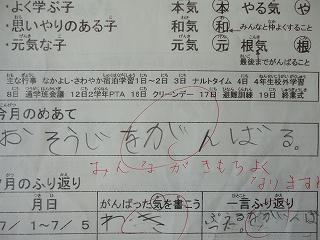 ・よく学ぶ子 本気 やる気
・思いやりのある子 和気 和 みんなと仲よくすること
・元気な子 元気 元 根気 根
最後までがんばること
主な行事 なかよし・さわやか宿泊学習1日~2日 3日 ナルトタイム 4日 4年生校外学習
8日 通学班会議 12日2学年PTA 16日 クリーンデー 17日 避難訓練 19日 終業式
今月のめあて
おそうじをがんばる。
みんながきもちよく
なりますね
7月のふり返り
月日 がんばった気を書こう 一言ふり返り
7/1~7/5 わき